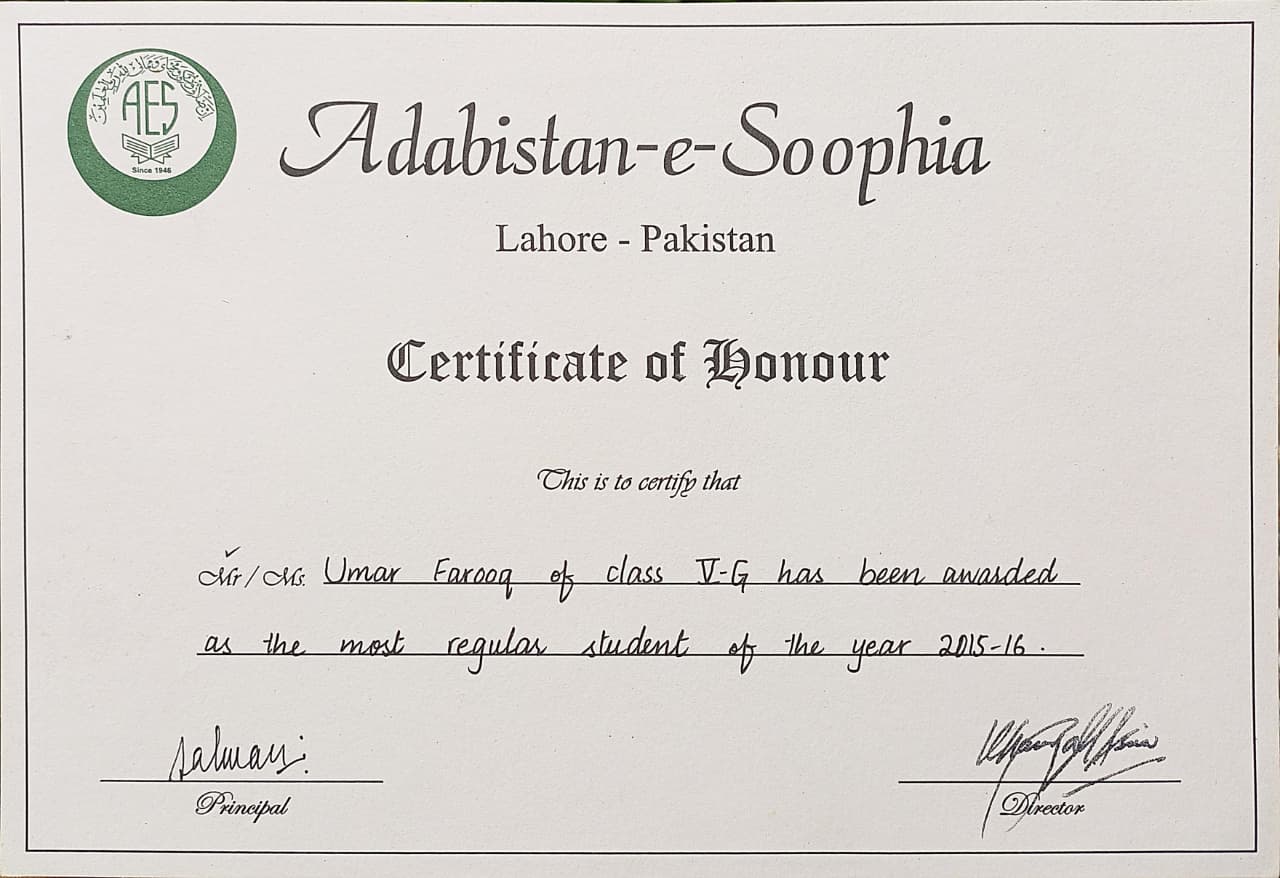 AES
Since 1946
Adabistan-e-Soophia
Lahore - Pakistan
Certificate of Honour
This is to certify that
Mr / Ms. Umar Farooq of class V-G has been awarded
as the most regular student of the year 2015-16.
Salman
Principal
Director